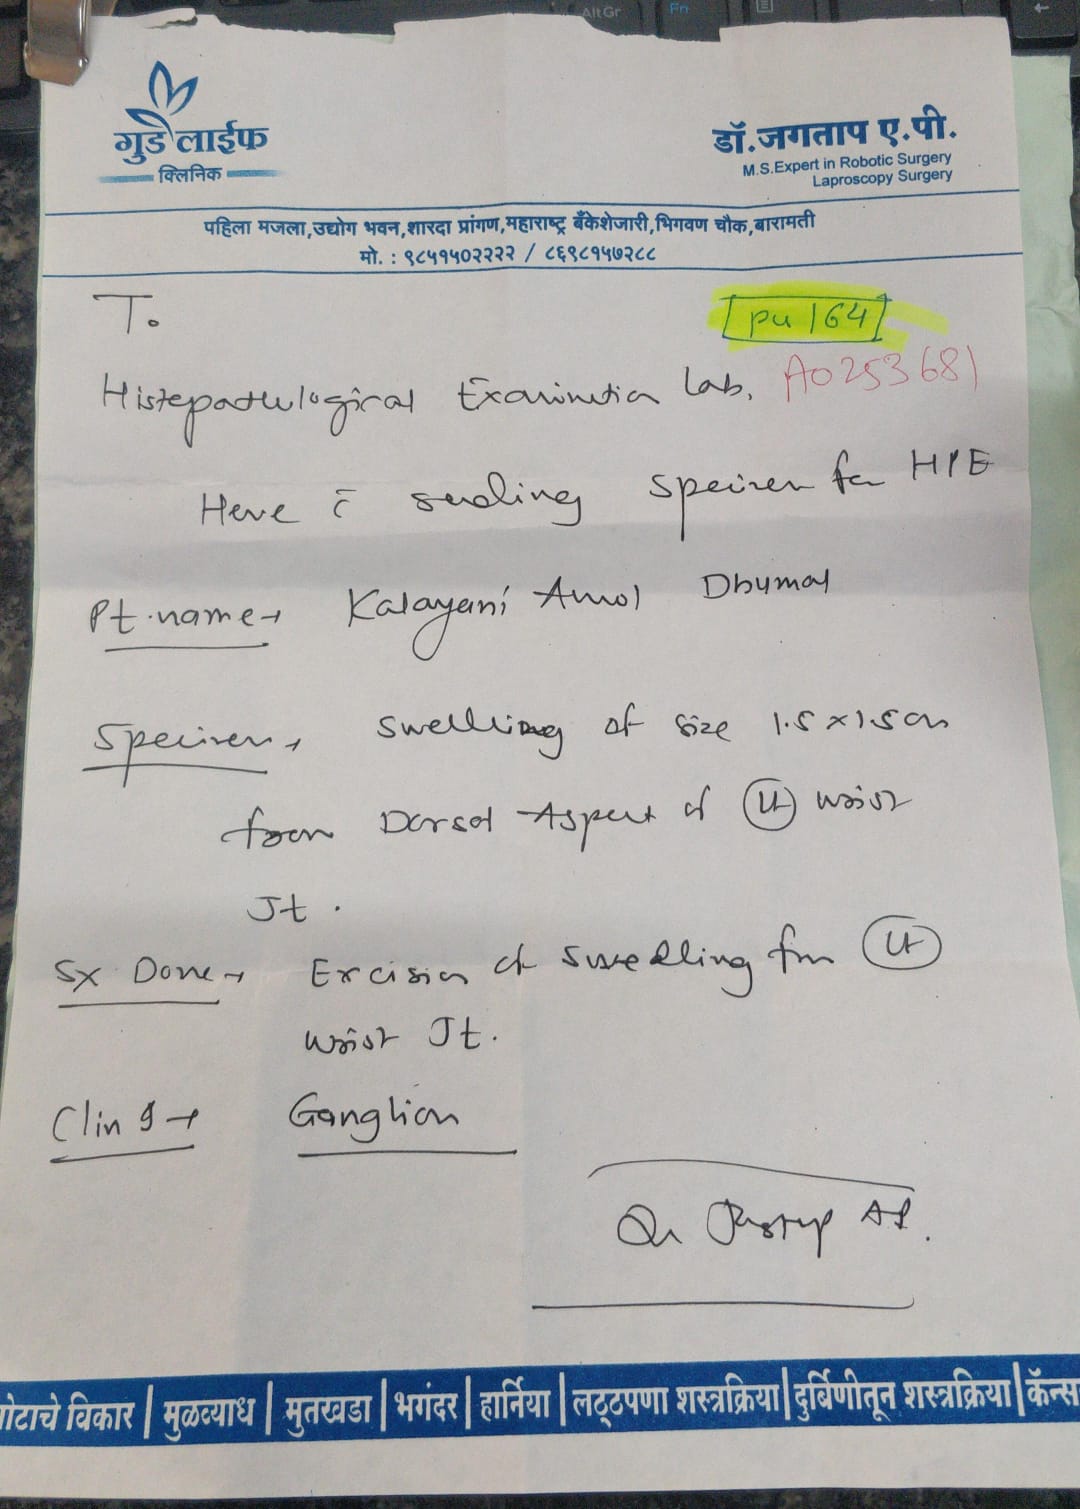 AltGr
Fn
गुड लाईफ
क्लिनिक
डॉ.जगताप ए.पी.
M.S.Expert in Robotic Surgery
Laproscopy Surgery
पहिला मजला,उद्योग भवन,शारदा प्रांगण,महाराष्ट्र बँकेशेजारी,भिगवण चौक,बारामती
मो. : ९८५१५०२२२२ / ८६९८१५७२८८
To
PU 164
Histopathological Examination Lab.
A0253681
Here c̄ sending specimen for HPE
Pt. name → Kalayani Amol Dhumal
Specimen → Swelling of size 1.5 x 1.5 cm
from Dorsal Aspect of Lt wrist
Jt.
Sx Done → Excision of Swelling from Lt
wrist Jt.
Clin → Ganglion
Dr AP.
पोटाचे विकार | मुळव्याध | मुतखडा | भगंदर | हार्निया | लठ्ठपणा शस्त्रक्रिया | दुर्बिणीतून शस्त्रक्रिया | कॅन्स